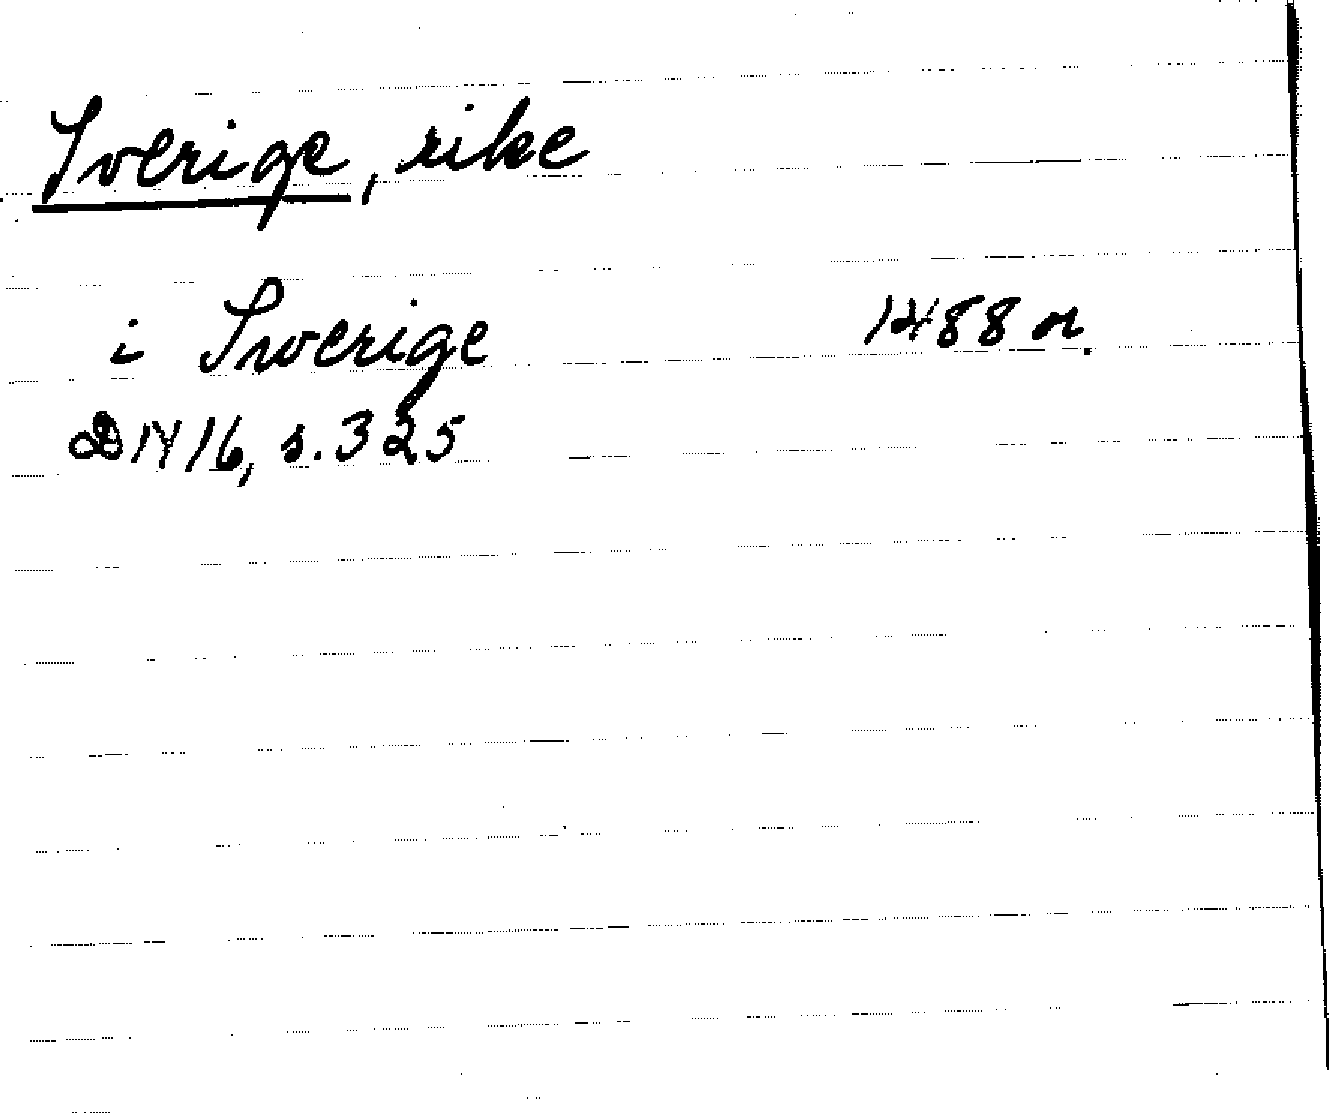 Sverige, rike
i Swerige 1488 or.
DN 16, s. 325